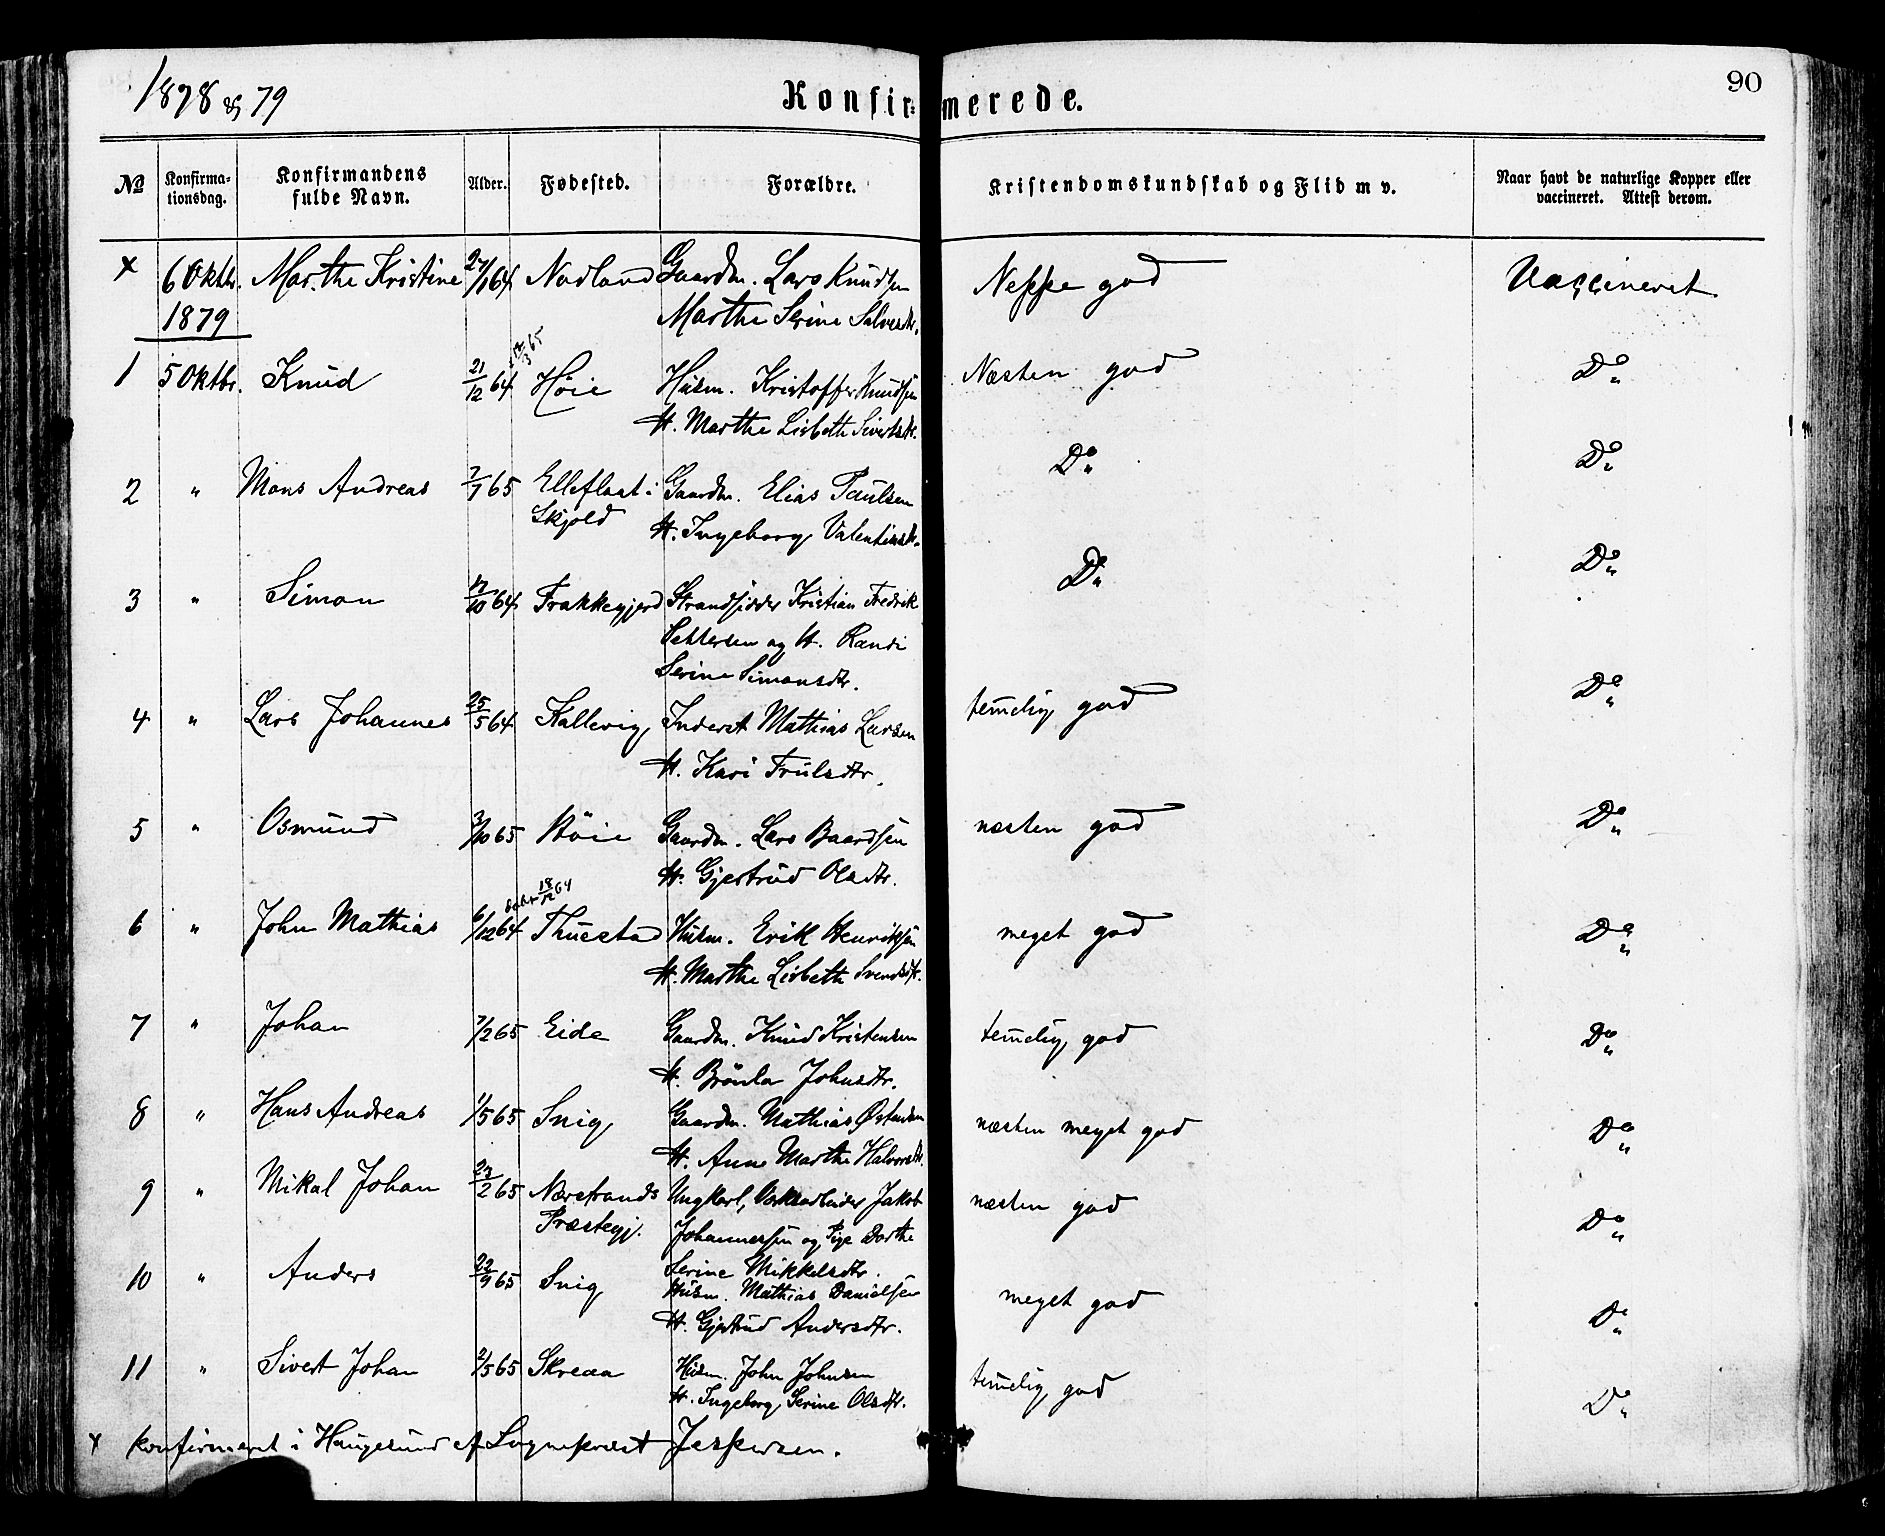 1878 & 79
Konfirmerede.
90
No
Konfirmationsdag.
Konfirmandens fulde Navn.
Alder.
Fødested.
Forældre.
Kristendomskundskab og Flid m v.
Naar havt de naturlige Kopper eller vaccineret. Attest derom.
x 6 Oktbr. Marthe Kristine 27/1 64 Nodland Gaardm. Lars Knudsen Neppe god Vaccineret
1879 Marthe Serine Salvesdtr.
1 5 Oktbr. Knud 21/12 64 Høie Husm. Kristoffer Knudsen Næsten god Do
H. Marthe Lisbeth Sivertsdtr.
2 " Mons Andreas 7/7 65 Elleflaat i Gaardm. Elias Paulsen Do Do
Skjold H. Ingeborg Valentinsdtr.
3 " Simon 17/10 64 Frakkegjerd Strandsidder Kristian Fredrik Do Do
Pettersen og H. Randi
Serine Simonsdtr.
4 " Lars Johannes 25/5 64 Kallevig Inderst Mathias Larsen temelig god Do
H. Kari Trulsdtr.
5 " Osmund 3/10 65 Høie Gaardm. Lars Baardsen næsten god Do
H. Gjertrud Olsdtr.
6 " John Mathias 6/12 64 Thuestad Husm. Erik Henriksen meget god Do
18/12 64
H. Marthe Lisbeth Svendsdtr.
7 " Johan 7/2 65 Eide Gaardm. Knud Kristensen temelig god Do
H. Brønla Johnsdtr.
8 " Hans Andreas 1/5 65 Snig Gaardm. Mathias Østensen næsten meget god Do
H. Anne Marthe Halvorsdtr.
9 " Mikal Johan 23/2 65 Nærstrands Ungkarl, Jakob næsten god Do
Præstegj. Johannessen og Pige Dorthe
Serine Mikkelsdtr.
10 " Anders 22/9 65 Snig Husm. Mathias Danielsen meget god Do
H. Gjertrud Andersdtr.
11 " Sivert Johan 2/5 65 Skreaa Husm. John Johnsen temelig god Do
H. Ingeborg Serine Olsdtr.
x konfirmeret i Haugesund af Sognepræst Jespersen.